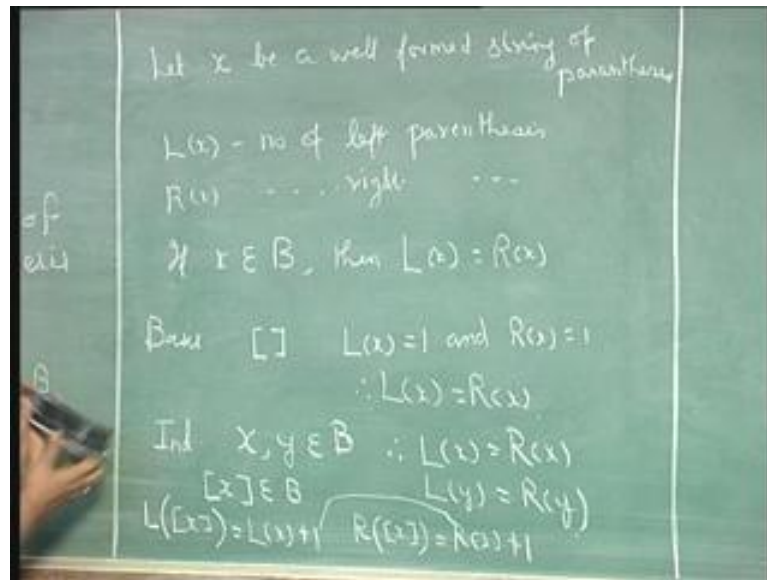 Let x be a well formed string of
parantheses
L(x) - no of left parenthesis
R(x) - .... right ---
If x ε B, then L(x) = R(x)
Base [] L(x) = 1 and R(x) = 1
∴ L(x) = R(x)
Ind x, y ε B ∴ L(x) = R(x)
[x] ε B L(y) = R(y)
L([x]) = L(x)+1 R([x]) = R(x)+1
of
B